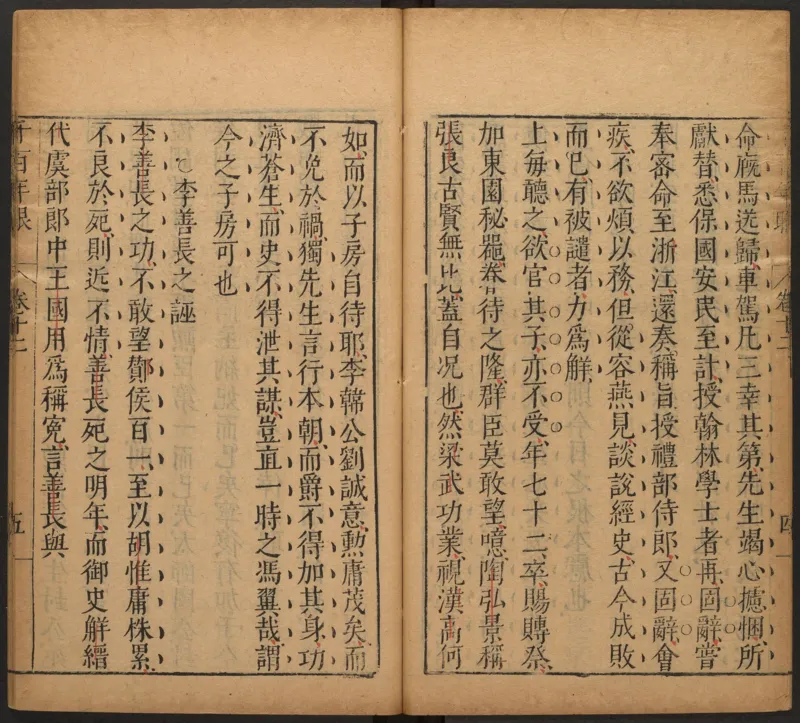 命廐馬送歸車駕凡三幸其第先生竭心攄悃所
獻替悉保國安民至計授翰林學士者再固辭嘗
奉密命至浙江還奏稱旨授禮部侍郎又固辭會
疾不欲煩以務但從容燕見談說經史古今成敗
而已有被譴者力爲解
上每聽之欲官其子亦不受年七十二卒賜賻祭
加東園秘器眷待之隆群臣莫敢望噫陶弘景稱
張良古賢無比蓋自况也然梁武功業視漢高何
卷十二
四
如而以子房自待耶李韓公劉誠意勲庸茂矣而
不免於禍獨先生言行本朝而爵不得加其身功
濟蒼生而史不得泄其謀豈直一時之馮翼哉謂
今之子房可也
李善長之誣
李善長之功不敢望酇侯百一至以胡惟庸株累
不良於死則近不情善長死之明年而御史解縉
代虞部郎中王國用爲稱寃言善長與
卷十二
五